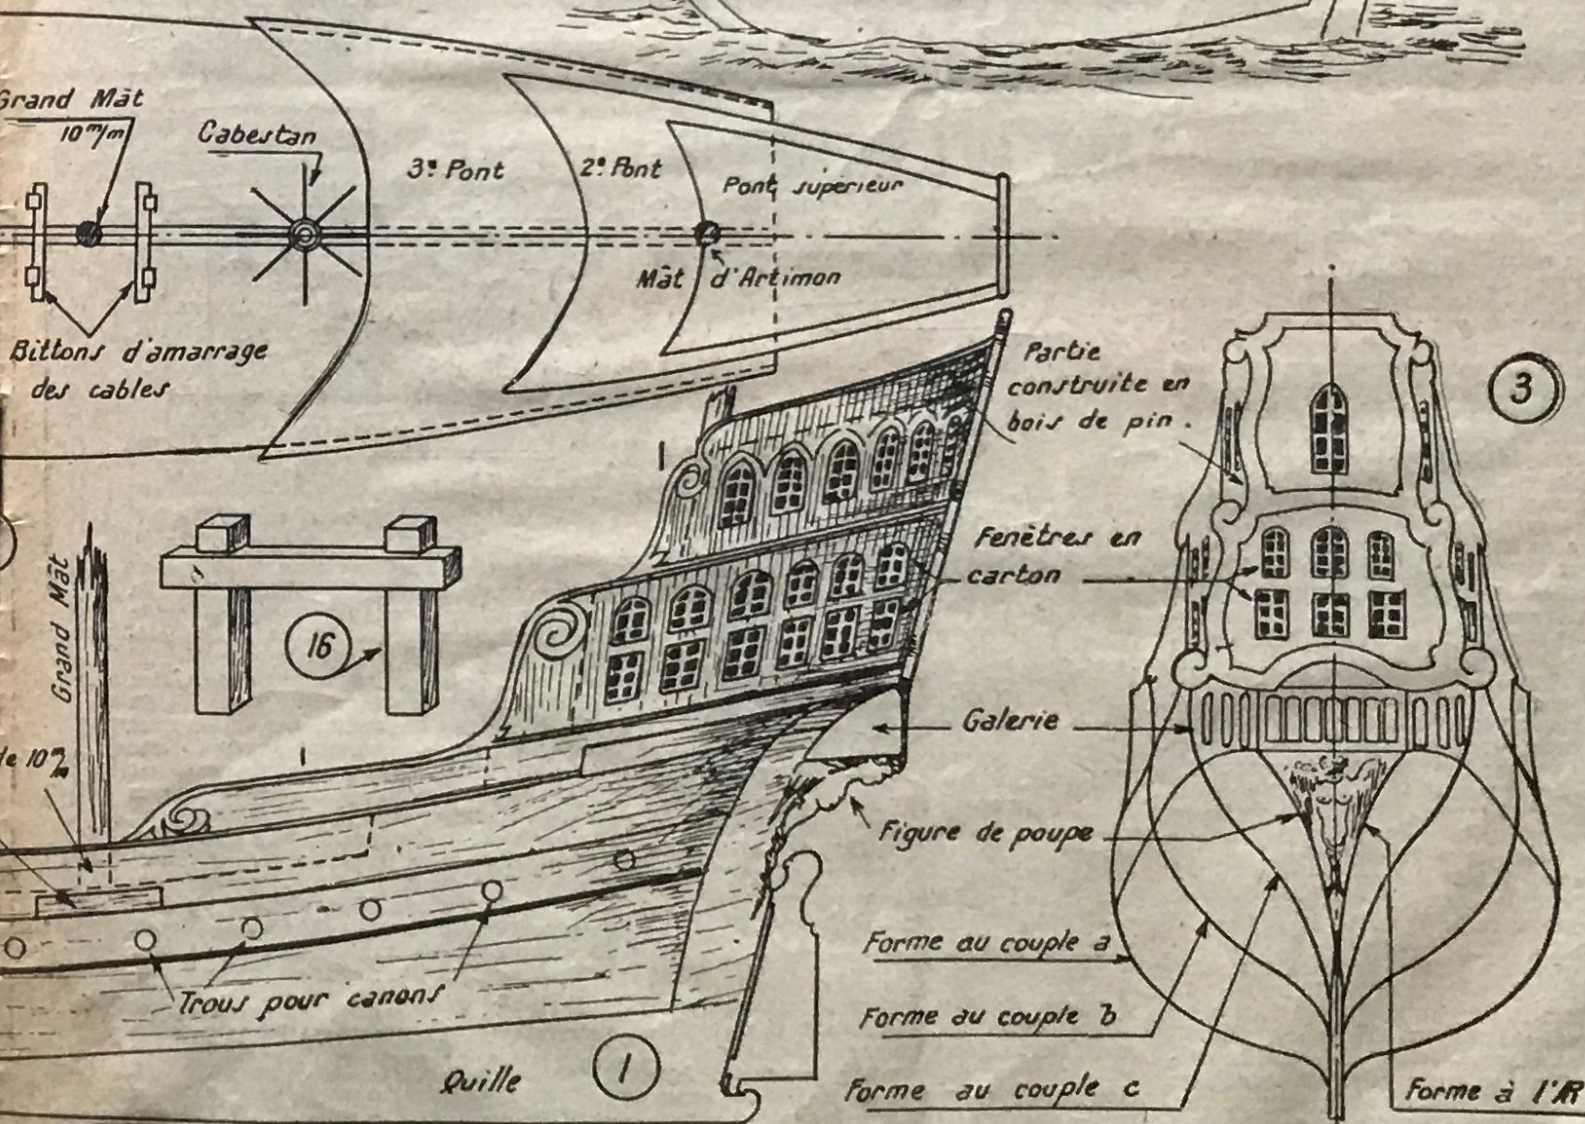 Grand Mât
10 m/m
Cabestan
3e Pont
2e Pont
Pont supérieur
Mât d'Artimon
Bittons d'amarrage
des cables
Partie
construite en
bois de pin.
3
Fenètres en
carton
Grand Mât
16
Galerie
de 10 m/m
Figure de poupe
Forme au couple a
Trous pour canons
Forme au couple b
Quille
1
Forme au couple c
Forme à l'AR